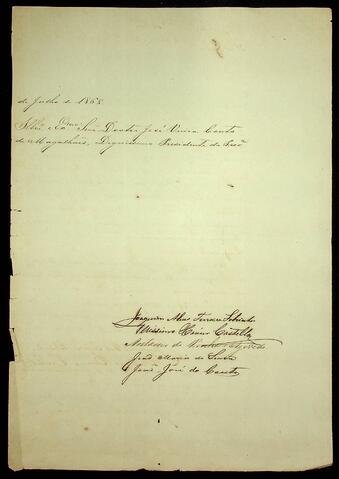 de Julho de 1868
Illmo Exmo Senr Doutor José Vieira Couto
de Magalhães, Dignissimo Presidente da Provª
Joaquim Alves Ferreira Sobrinho
Xavier Castello
de
João Maria de Souza
José do Couto